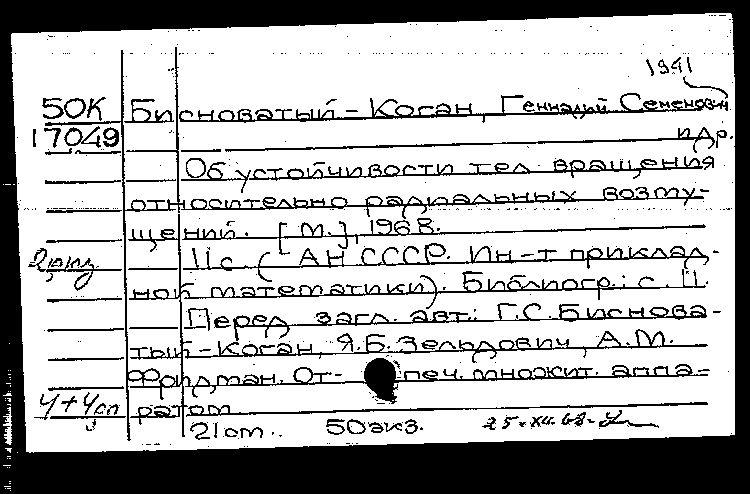 1941
50К Бисноватый-Коган, Геннадий Семенович
17049 и др.
Об устойчивости тел вращения
относительно радиальных возму-
щений. [М.], 1968.
11 с. (АН СССР. Ин-т приклад-
ной математики). Библиогр.: с. 11.
Перед загл. авт.: Г.С. Биснова-
тый-Коган, Я.Б. Зельдович, А.М.
Фридман. От- печ. множит. аппа-
4+4 ратом
21 от.. 50 экз. 25.XII.68